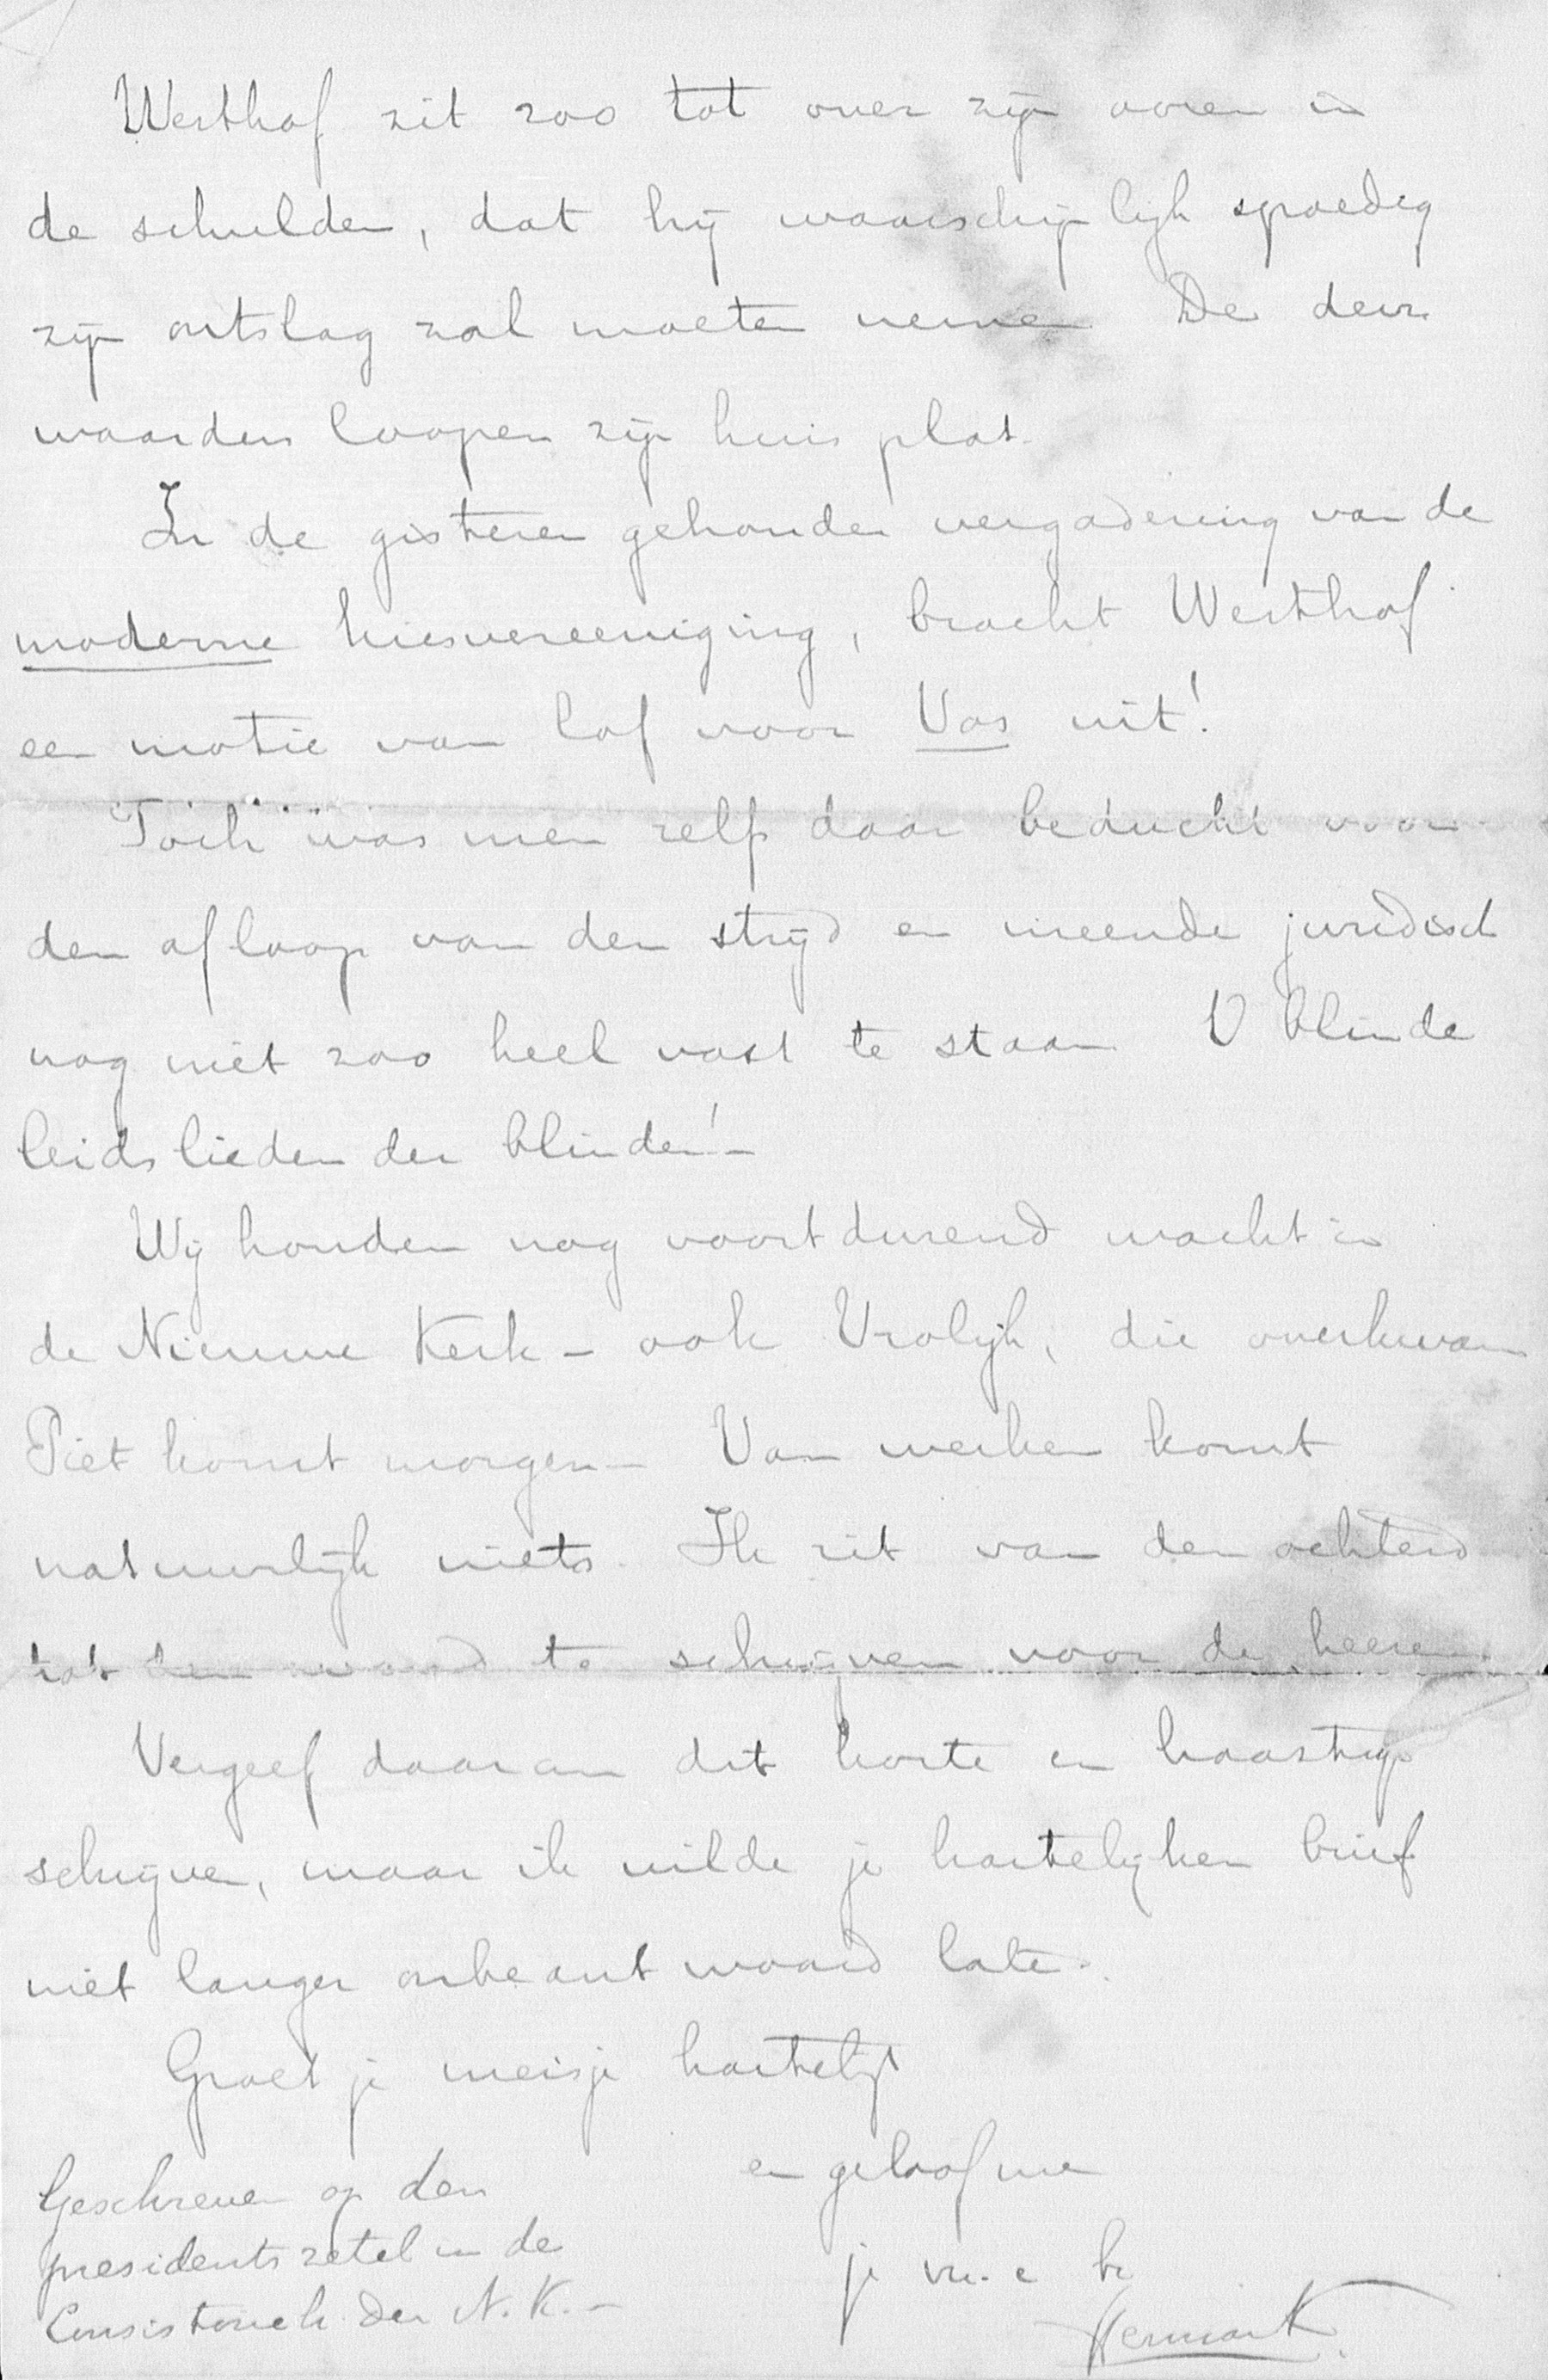 Westhof zit zoo tot over zijn ooren in
de schulden, dat hij waarschijnlijk spoedig
zijn ontslag zal moeten nemen. De deur
waarders loopen zijn huis plat.
In de gisteren gehouden vergadering van de
moderne kiesvereeniging, bracht Westhof
een motie van lof voor Vos uit!
Toch was men zelfs daar beducht voor
den afloop van den strijd en meende juridisch
nog niet zoo heel vast te staan. O blinde
leidslieden der blinden! –
Wij houden nog voortdurend wacht in
de Nieuwe Kerk – ook Vrolijk, die overkwam
Piet komt morgen – Van werken komt
natuurlijk niets. Ik zit van den ochtend
tot den avond te schrijven voor de heeren.
Vergeef daarom dit korte en haastige
schrijven, maar ik wilde je hartelijken brief
niet langer onbeantwoord laten.
Groet je meisje hartelijk
en geloof me
je vr. e br
Herman K.
Geschreven op den
presidentszetel in de
Consistoriek. der N. K. –